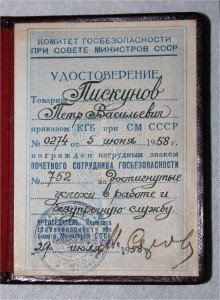 КОМИТЕТ ГОСБЕЗОПАСНОСТИ
ПРИ СОВЕТЕ МИНИСТРОВ СССР
УДОСТОВЕРЕНИЕ
Товарищ Пискунов
Петр Васильевич
приказом КГБ при СМ СССР
№ 0274 от 5 июня 1958 г.
награжден нагрудным знаком
ПОЧЕТНОГО СОТРУДНИКА ГОСБЕЗОПАСНОСТИ
№ 752 за достигнутые
успехи в работе и
безупречную службу.
ПРЕДСЕДАТЕЛЬ Комитета
ГОСБЕЗОПАСНОСТИ при
Совете Министров СССР
29 июля 1958 г.